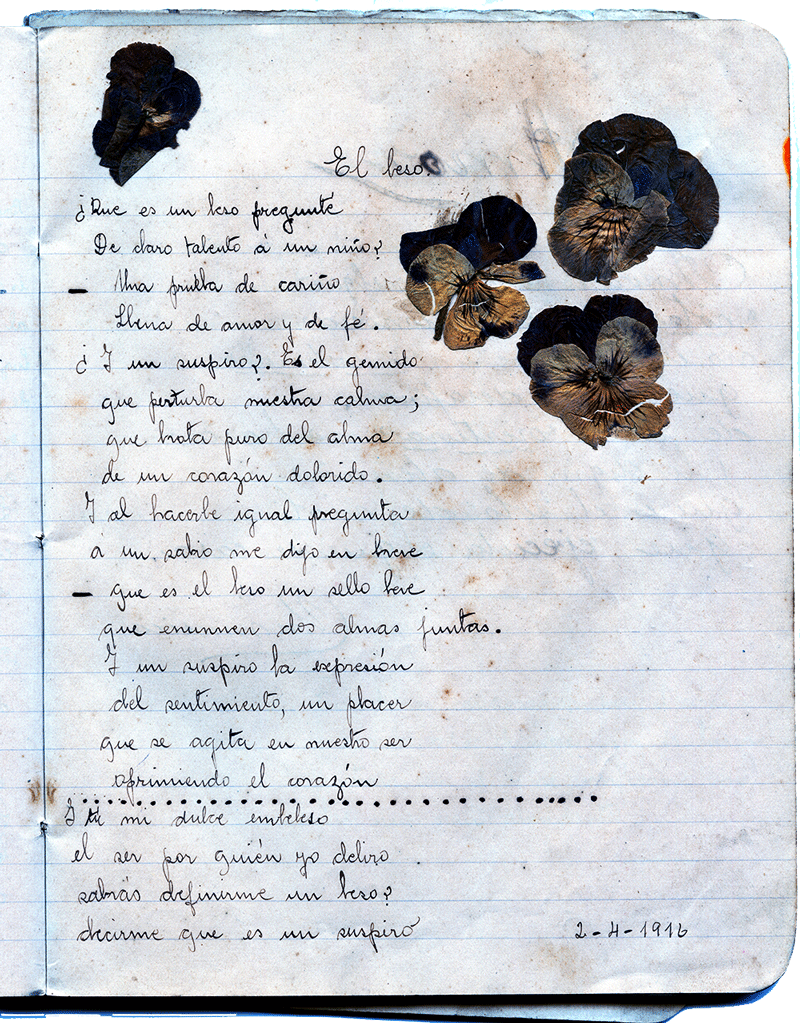 El beso.
¿Que es un beso pregunté
De claro talento á un niño?
- Una prueba de cariño
Llena de amor y de fé.
¿Y un suspiro?. Es el gemido
que perturba nuestra calma;
que brota puro del alma
de un corazón dolorido.
Y al hacerle igual pregunta
á un sabio me dijo en breve
- que es el beso un sello leve
que enunnen dos almas juntas.
Y un suspiro la expresión
del sentimiento, un placer
que se agita en nuestro ser
oprimiendo el corazón
Y tu mi dulce embeleso
el ser por quién yo deliro
sabrás definirme un beso?
decirme que es un suspiro
2-4-1916